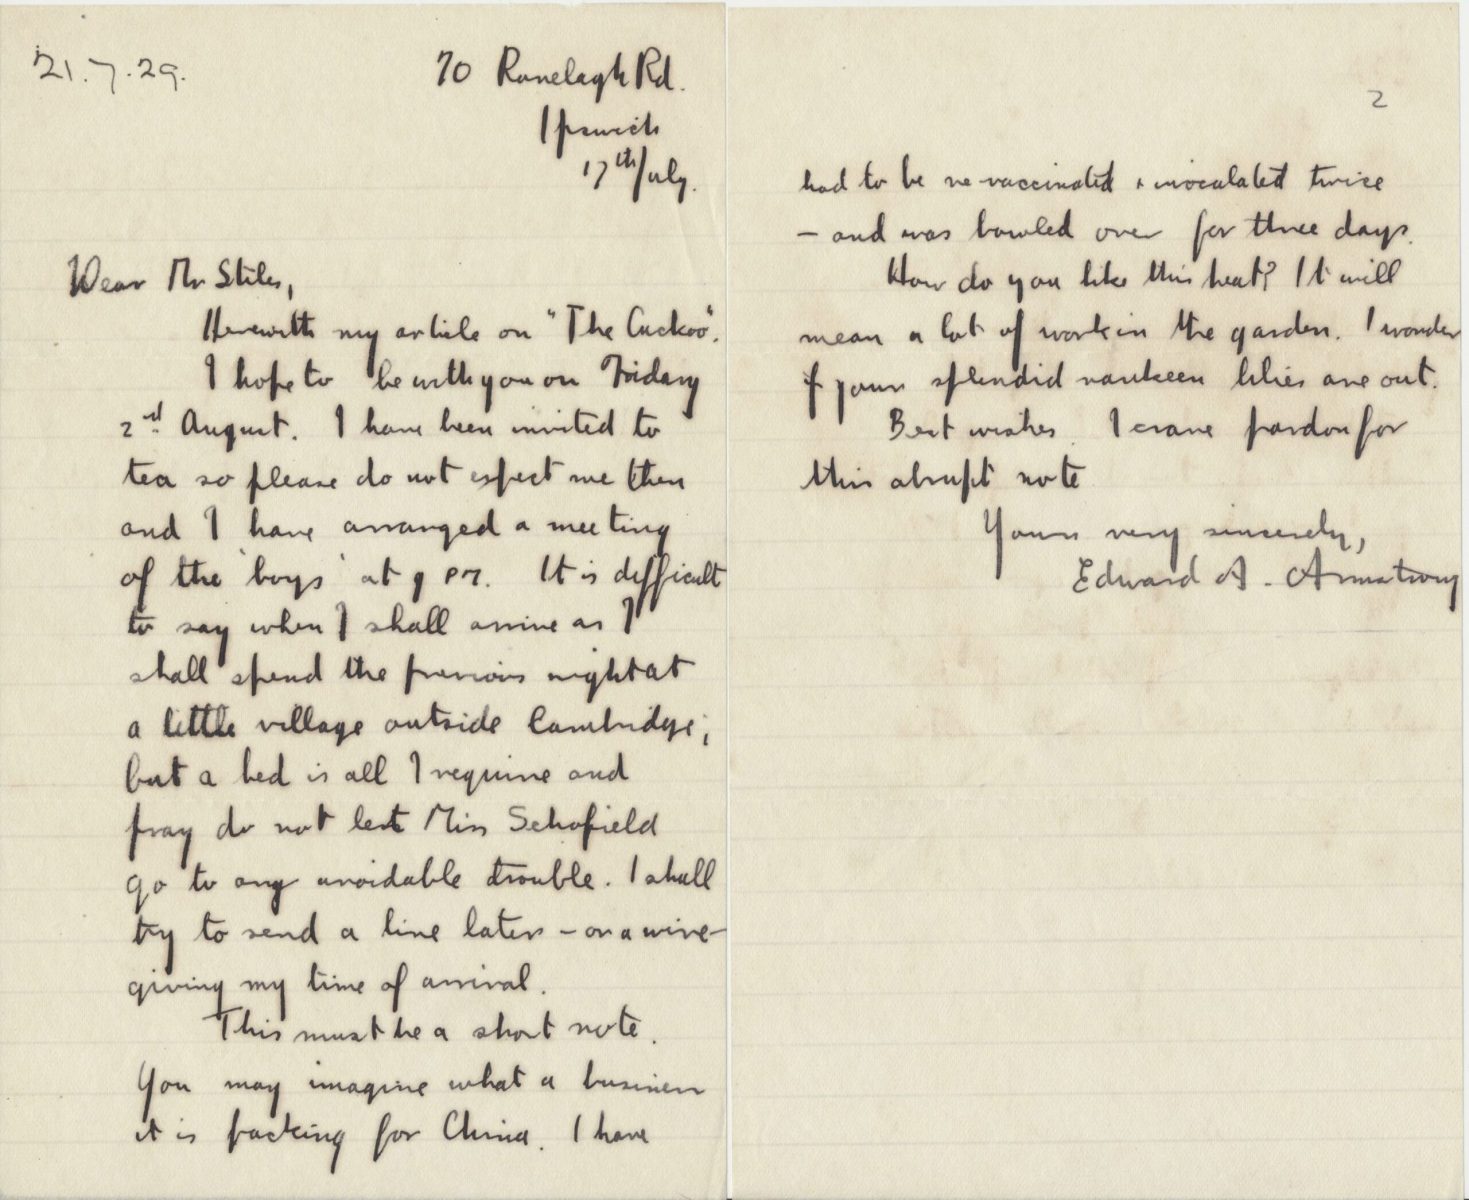 21.7.29.
70 Ranelagh Rd.
Ipswich
17th July.
Dear Mr Stiles,
Herewith my article on "The Cuckoo".
I hope to be with you on Friday
2nd August. I have been invited to
tea so please do not expect me then
and I have arranged a meeting
of the 'boys' at 9 PM. It is difficult
to say when I shall arrive as I
shall spend the previous night at
a little village outside Cambridge;
but a bed is all I require and
pray do not let Miss Schofield
go to any avoidable trouble. I shall
try to send a line later – or a wire –
giving my time of arrival.
This must be a short note.
You may imagine what a business
it is packing for China. I have
2
had to be re-vaccinated & inoculated twice
– and was bowled over for three days.
How do you like this heat? It will
mean a lot of work in the garden. I wonder
if your splendid nankeen lilies are out.
Best wishes. I crave pardon for
this abrupt note
Yours very sincerely,
Edward A. Armstrong